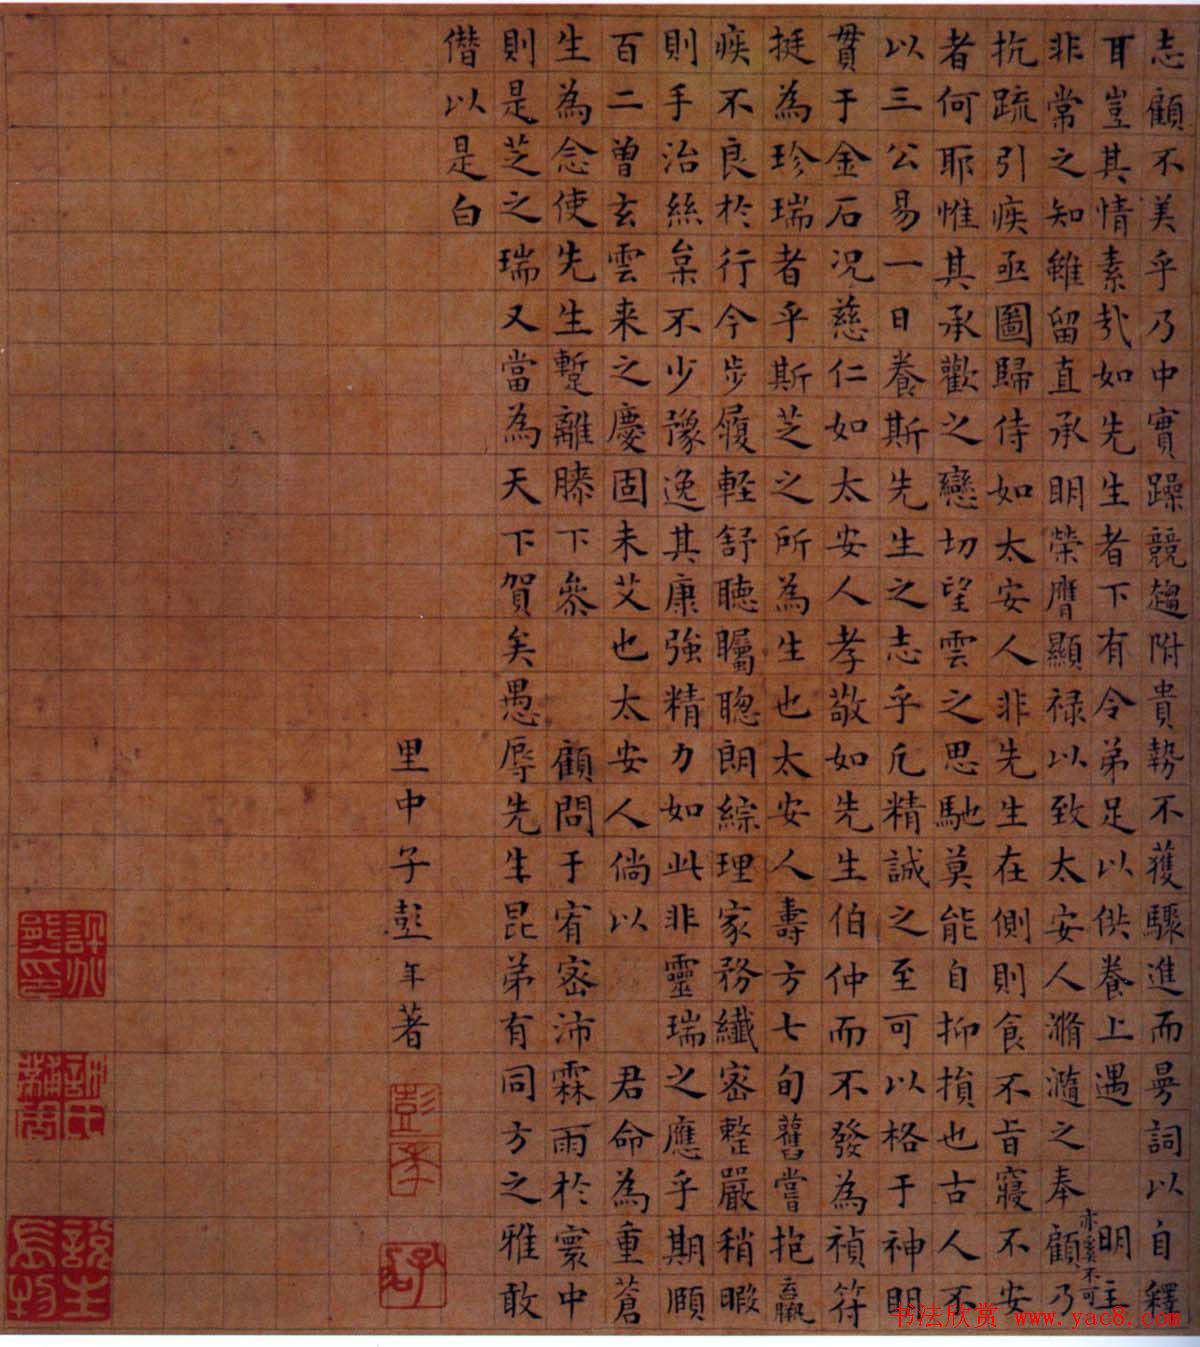 志顧不美乎乃中實躁競趨附貴勢不獲驟進而曼詞以自釋
耳豈其情素㢤如先生者下有令弟足以供養上遇明主
亦奚不可
非常之知雖留直承明榮膺顯禄以致太安人滫瀡之奉顧乃
抗疏引疾亟圖歸侍如太安人非先生在側則食不旨寢不安
者何耶惟其承歡之戀切望雲之思馳莫能自抑損也古人不
以三公易一日養斯先生之志乎凡精誠之至可以格于神明
貫于金石況慈仁如太安人孝敬如先生伯仲而不發為禎符
挺為珍瑞者乎斯芝之所為生也太安人壽方七旬舊嘗抱羸
疾不良於行今步履輕舒聽矚聰朗綜理家務纖密整嚴稍暇
則手治絲枲不少豫逸其康強精力如此非靈瑞之應乎期頤
百二曽玄雲来之慶固未艾也太安人倘以君命為重蒼
生為念使先生蹔離膝下叅顧問于宥密沛霖雨於寰中
則是芝之瑞又當為天下賀矣愚辱先生昆弟有同方之雅敢
僭以是白
里中子彭年著
彭年
書法欣赏 www.yac8.com